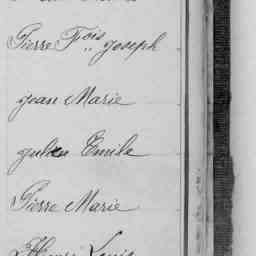 Pierre Fois Joseph
Jean Marie
Julien Emile
Pierre Marie
Louis